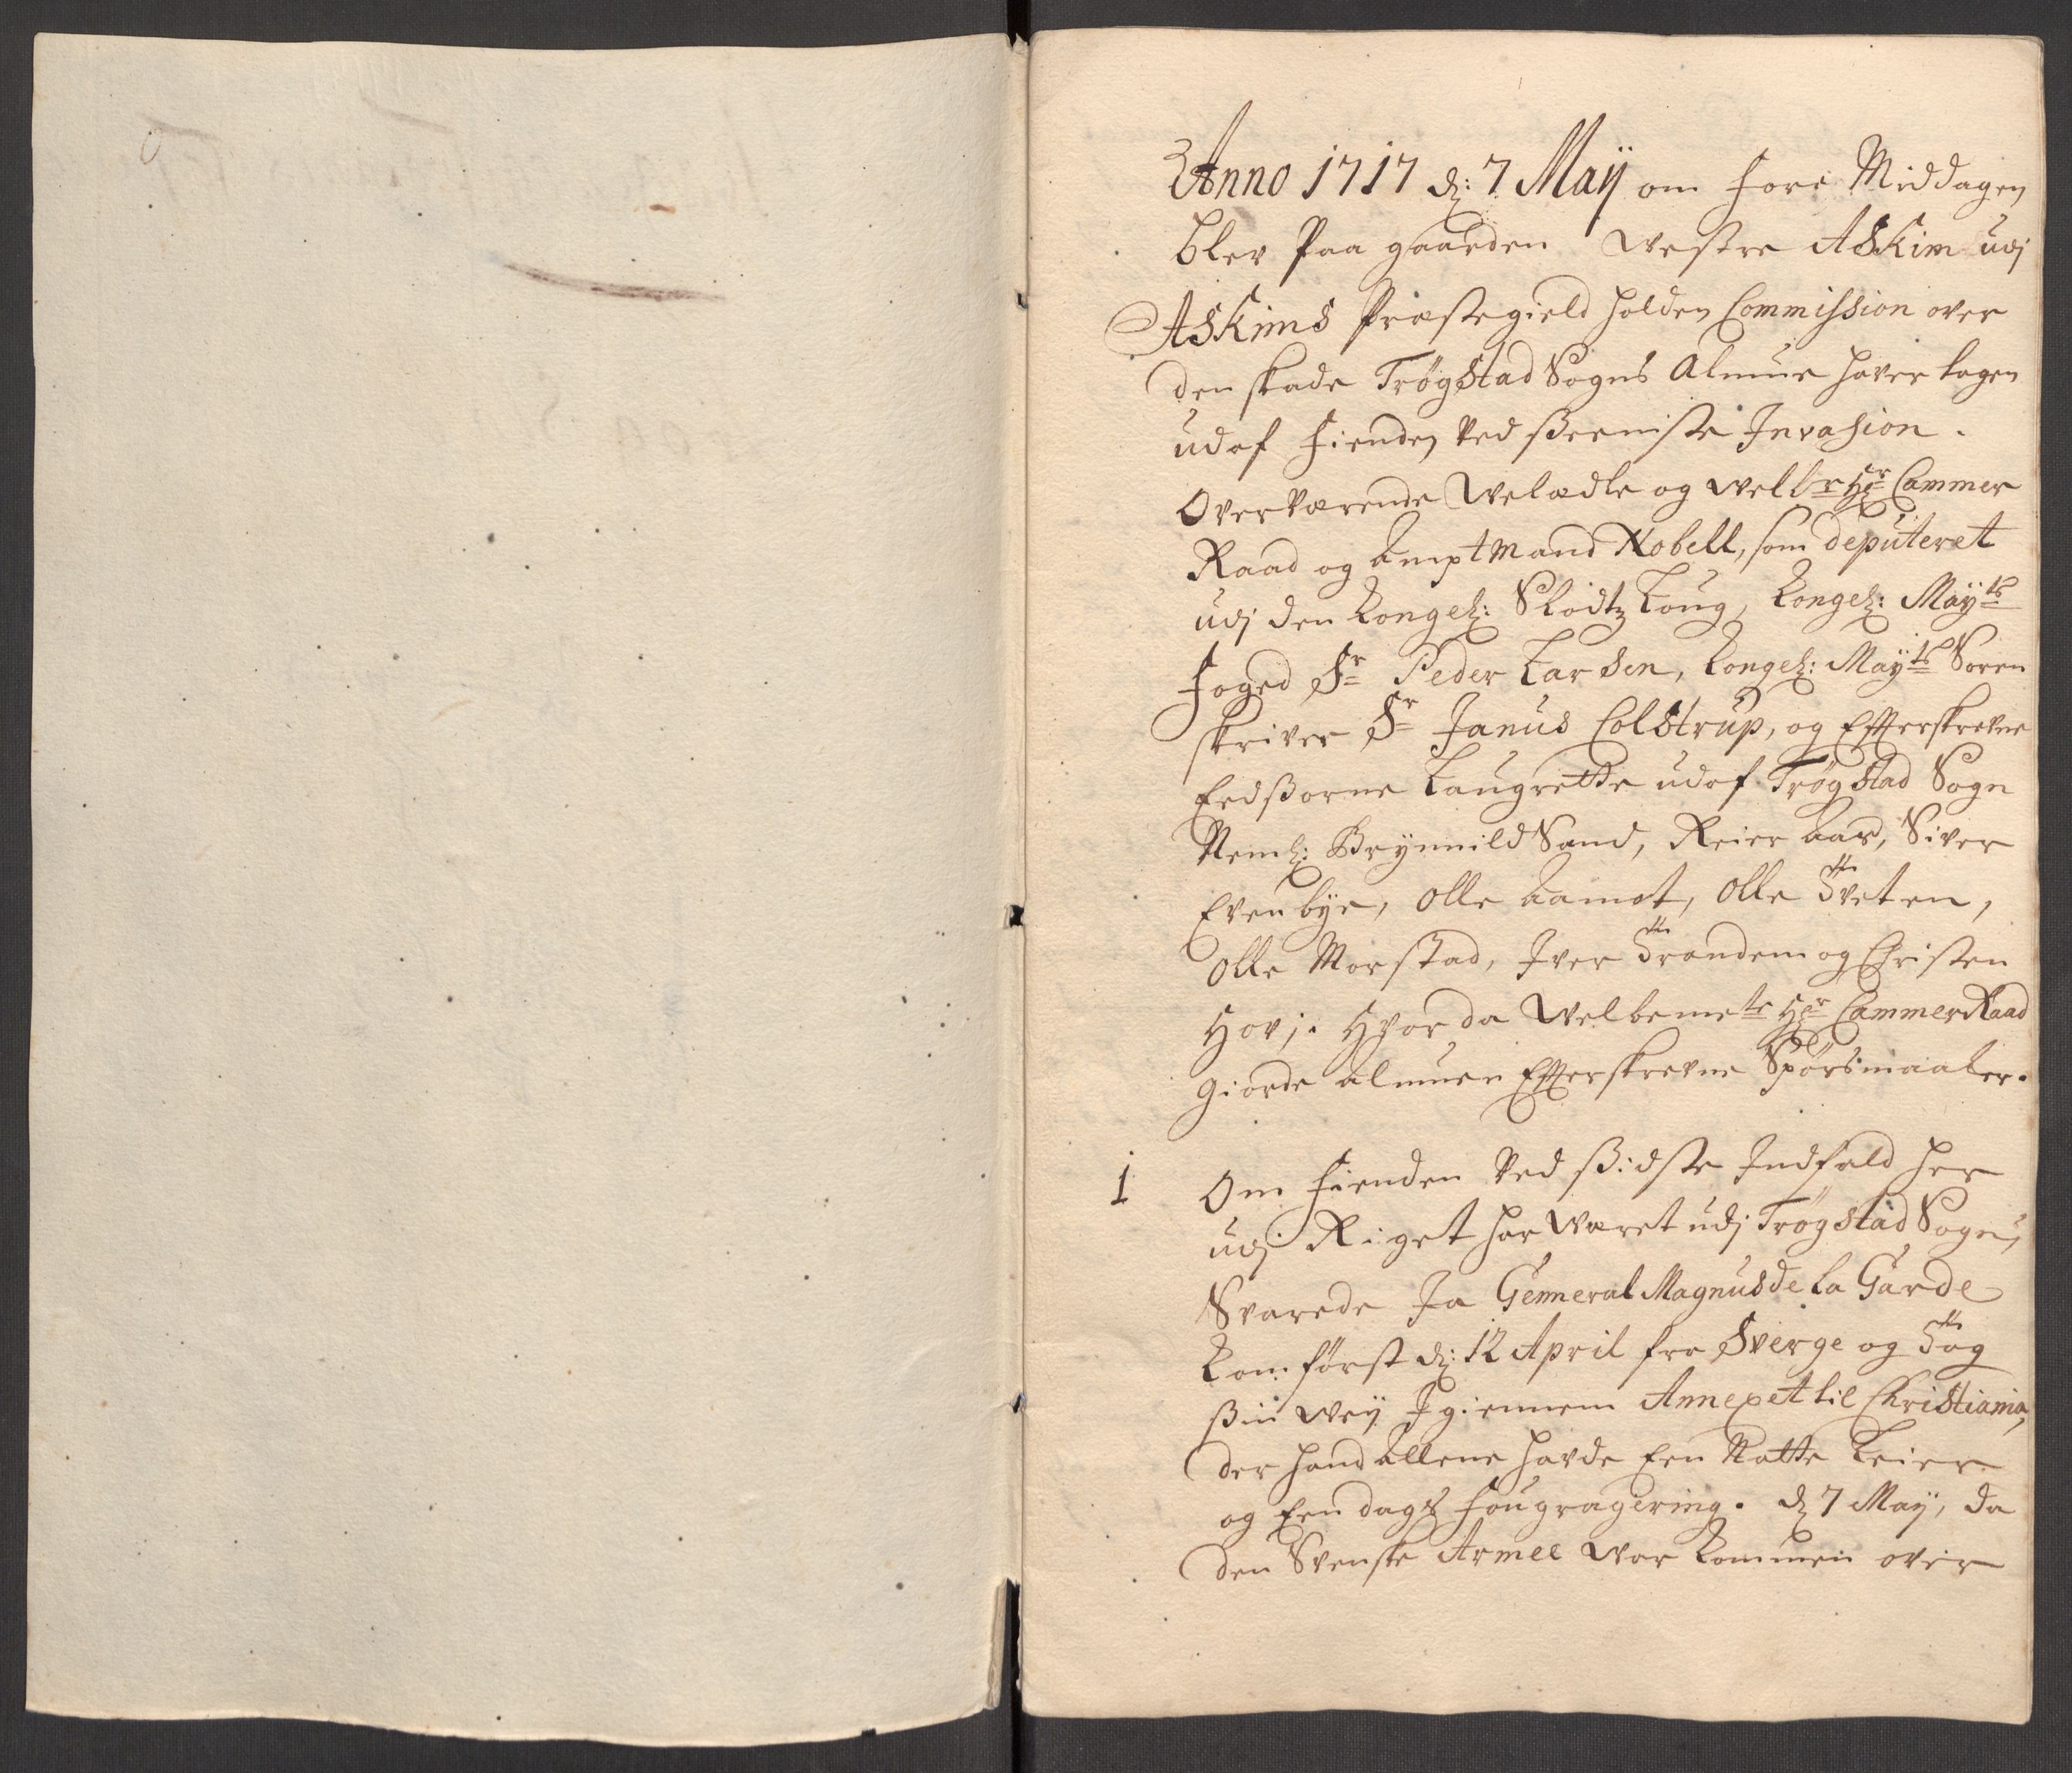 Anno 1717 d: 7 Maÿ om fore Middagen
blev paa gaarden Westre Askim udj
Askims Præstegield holden Commission over
den skade Trøgstad Sogns Almue haver tagen
udaf fienden ved ßeeniste Invasion.
Overværende Welædle og welbr Hr Cammer
Raad og Amptmand Nobell, som deputeret
udj den Kongel: Slodtz Loug, Kongel: Maÿts
Foged Sr Peder Larsen, Kongel: Maÿts Soren
skriver Sr Janus Colstrup, og Efterskrevne
Eedßorne Laugrette udaf Trøgstad Sogn
Neml: Brynnild Sand, Reier Aas, Siver
Evenbÿe, Olle Aamot, Olle Tveten,
Olle Morstad, Iver Trandem og Christen
Hovj. Hvor da Welbemte Hr Cammer Raad
giorde almuen Efterskrevne Spørsmaaler.
1 Om fienden ved ßidste Indfald her
udj Riget har Været udj Trøgstad Sogn,
Svarede Ja Genneral Magnus de la Garde
kom først d: 12 April fra Sverge og tog
ßin Veÿ Igiennem Annexet til Christiania,
der hand Allene havde Een Natte Leier
og Een dags fougragering. d 7 Maÿ, da
den Svenske Armee var kommen over